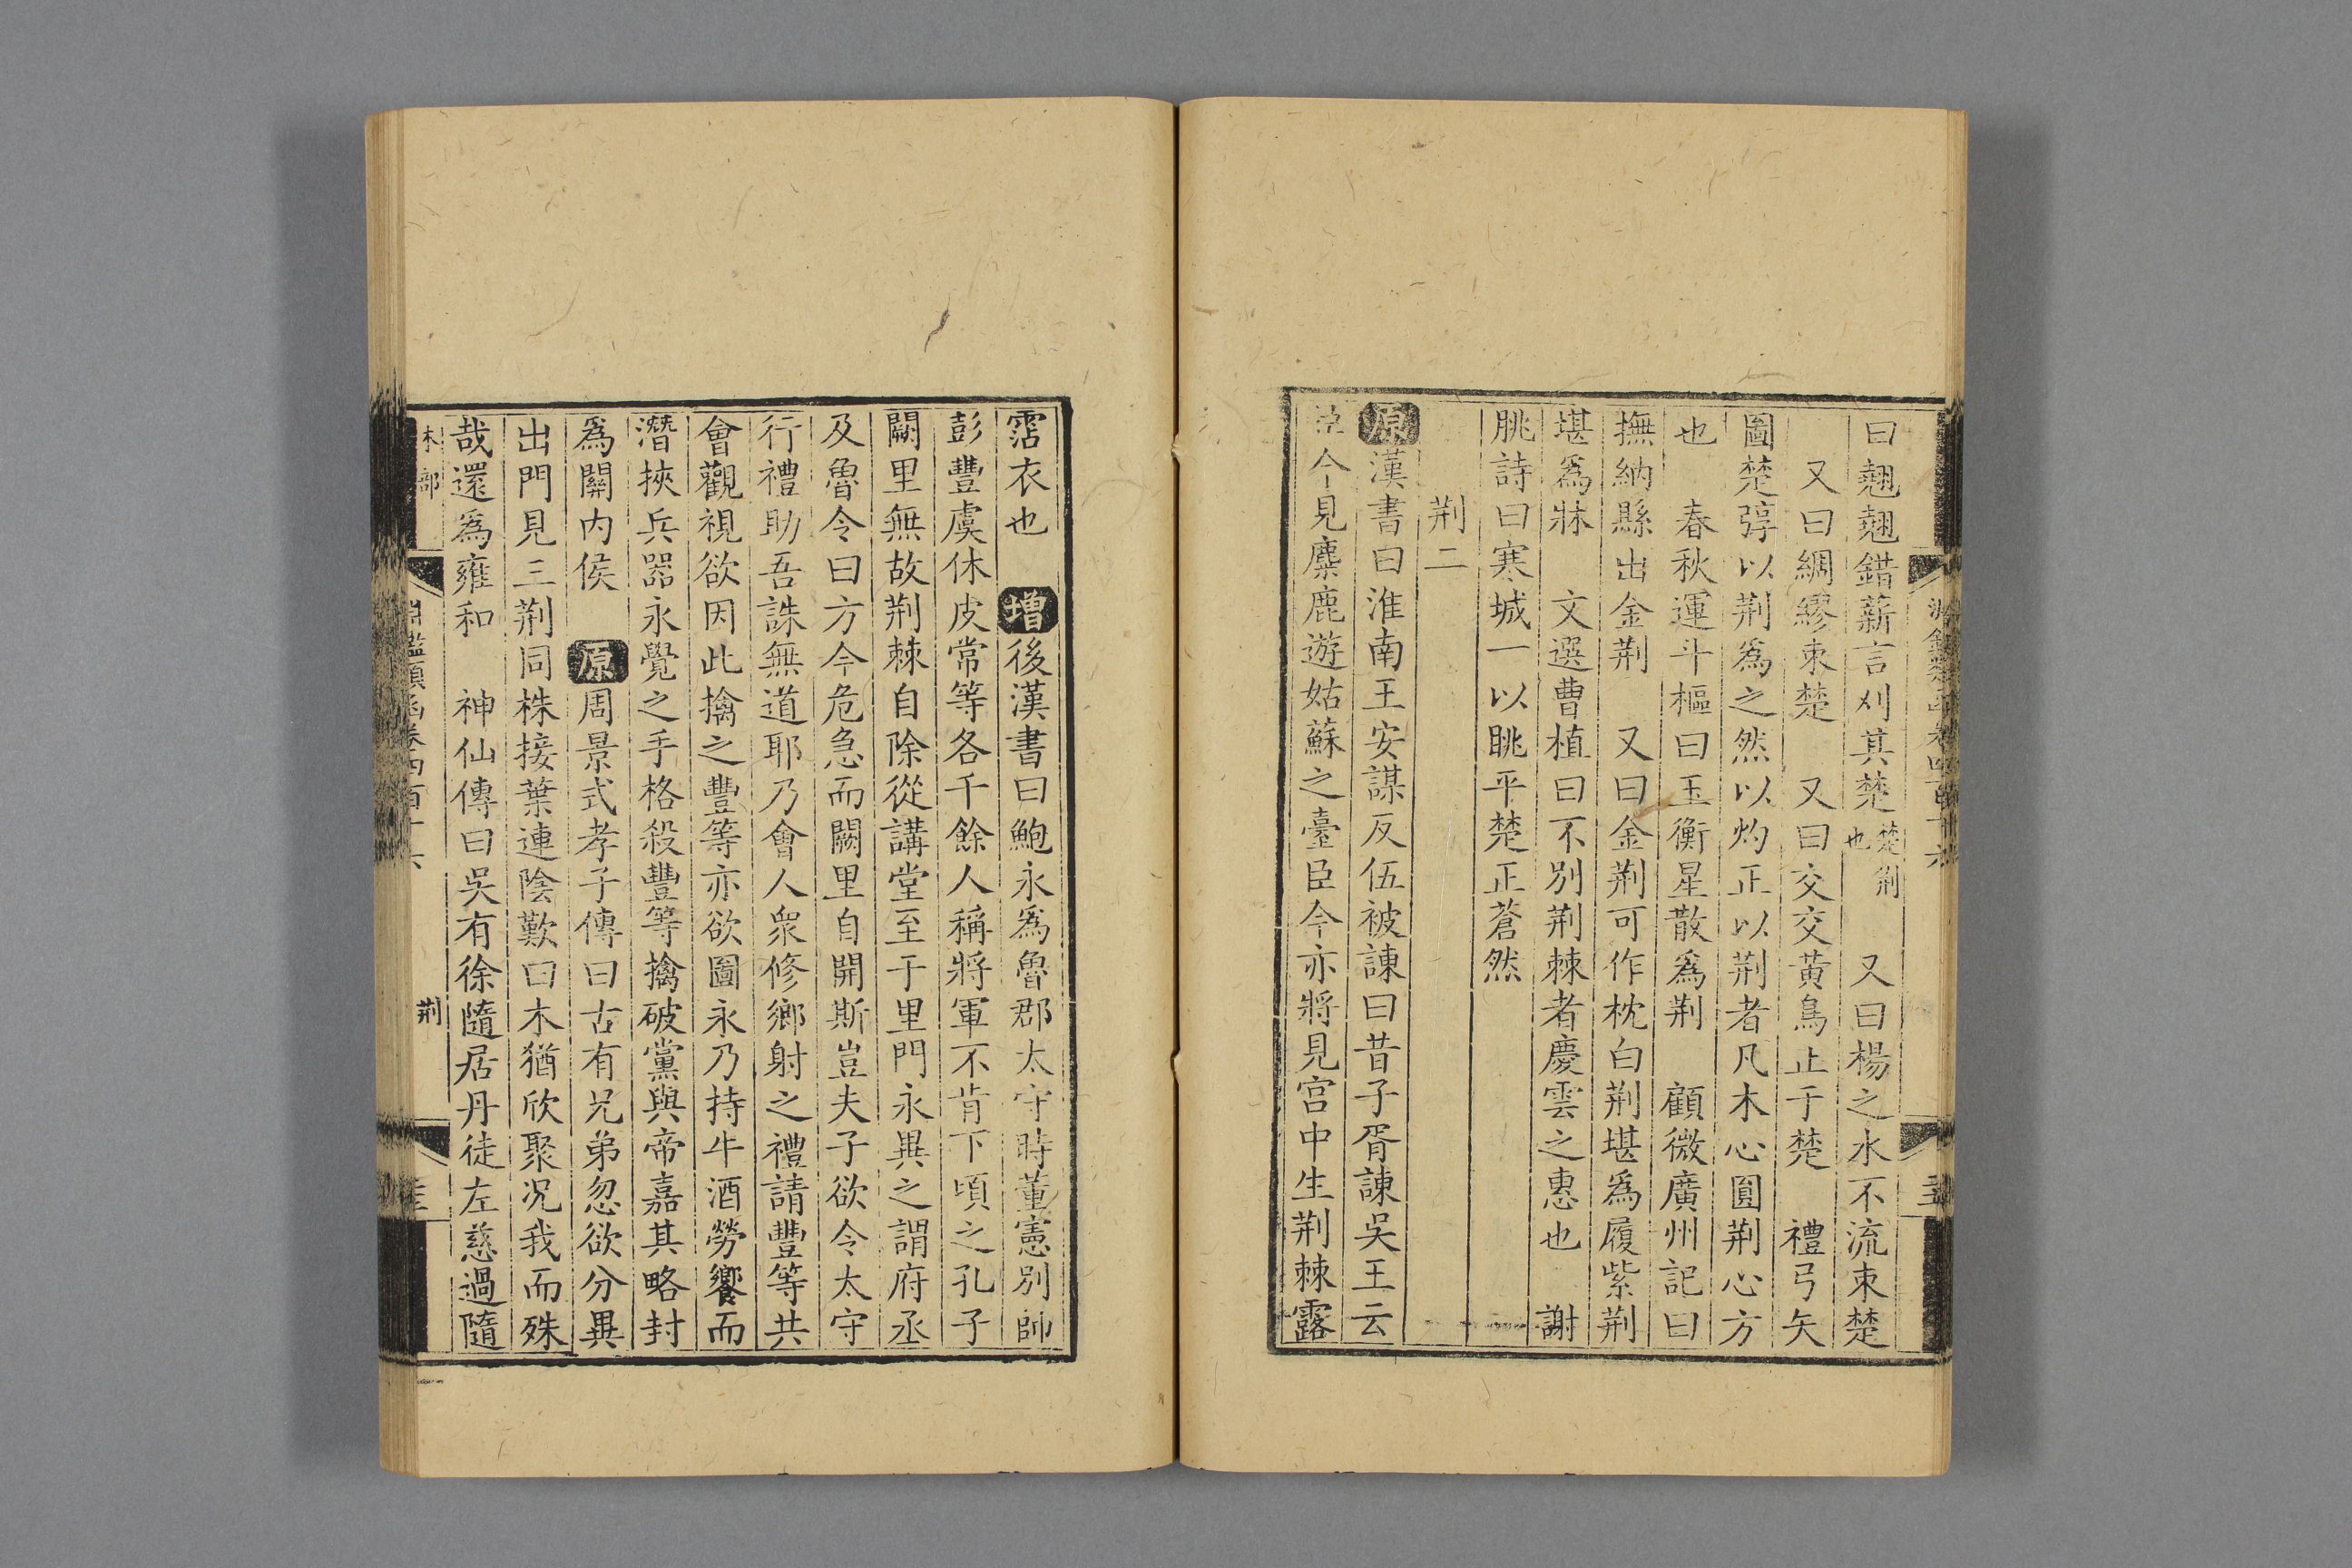 曰翹翹錯薪言刈其楚楚荆也　又曰楊之水不流束楚
又曰綢繆束楚　又曰交交黃鳥止于楚　禮弓矢
圖楚焞以荆爲之然以灼正以荆者凡木心圓荆心方
也　春秋運斗樞曰玉衡星散爲荆　顧微廣州記曰
撫納縣出金荆　又曰金荆可作枕白荆堪爲履紫荆
堪爲牀　文選曹植曰不别荆棘者慶雲之惠也　謝
朓詩曰寒城一以眺平楚正蒼然
荆二
原漢書曰淮南王安謀反伍被諫曰昔子胥諫吳王云
臣今見麋鹿遊姑蘇之臺臣今亦將見宮中生荆棘露
霑衣也　增後漢書曰鮑永爲魯郡太守時董憲别帥
彭豐虞休皮常等各千餘人稱將軍不肯下頃之孔子
闕里無故荆棘自除從講堂至于里門永異之謂府丞
及魯令曰方今危急而闕里自開斯豈夫子欲令太守
行禮助吾誅無道耶乃會人衆修鄉射之禮請豐等共
會觀視欲因此擒之豐等亦欲圖永乃持牛酒勞饗而
潛挾兵器永覺之手格殺豐等擒破黨與帝嘉其略封
爲關内侯　原周景式孝子傳曰古有兄弟忽欲分異
出門見三荆同株接葉連陰歎曰木猶欣聚况我而殊
哉還爲雍和　神仙傳曰吳有徐隨居丹徒左慈過隨
木部　淵鑑類函卷四百十六　荆